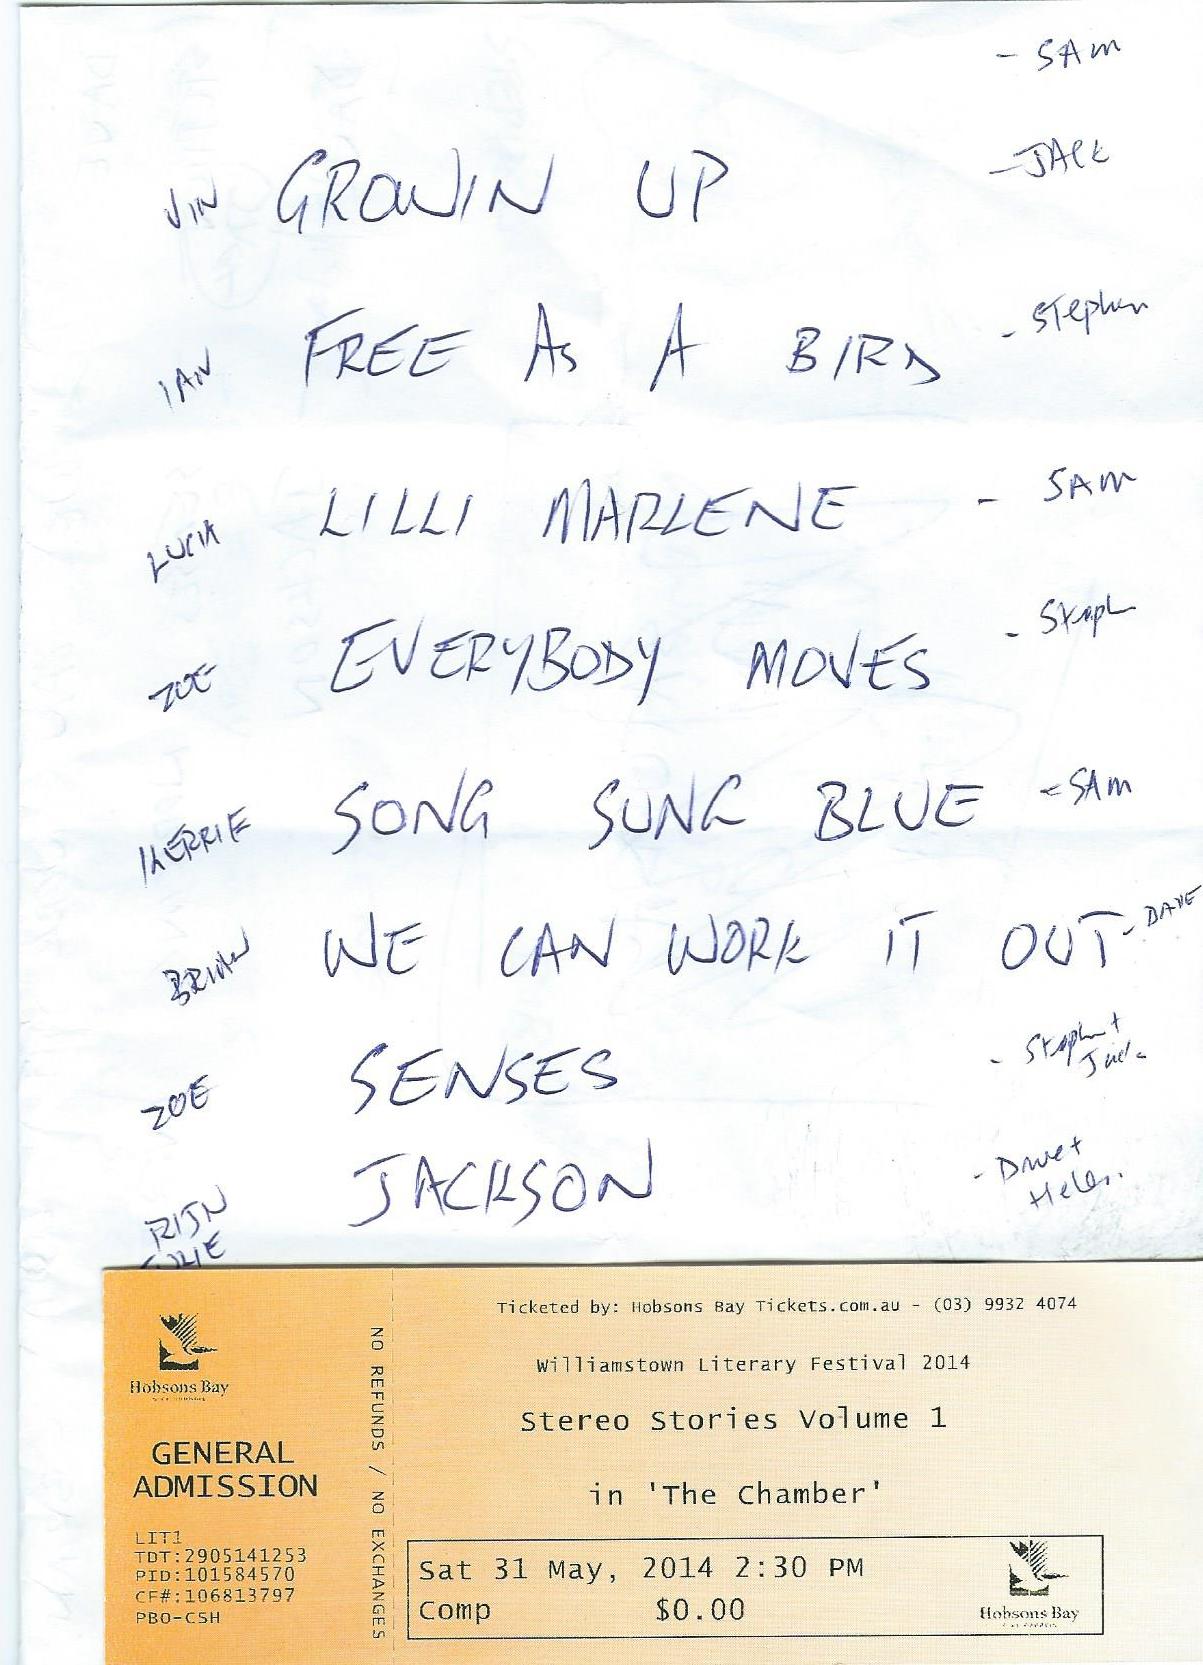 - SAM
- JACK
VIN GROWIN UP
IAN FREE AS A BIRD - Stephen
LUCIA LILLI MARLENE - SAM
ZOE EVERYBODY MOVES - Steph
KERRIE SONG SUNG BLUE - SAM
BRIAN WE CAN WORK IT OUT - DAVE
ZOE SENSES - Steph +
JACKSON - Dave +
Helen.
RIJN
JULIE
Ticketed by: Hobsons Bay Tickets.com.au - (03) 9932 4074
Williamstown Literary Festival 2014
Stereo Stories Volume 1
in 'The Chamber'
Sat 31 May, 2014 2:30 PM
Comp $0.00
Hobsons Bay
Hobsons Bay
GENERAL
ADMISSION
LIT1
TDT:2905141253
PID:101584570
CF#:106813797
PBO-CSH
NO REFUNDS / NO EXCHANGES